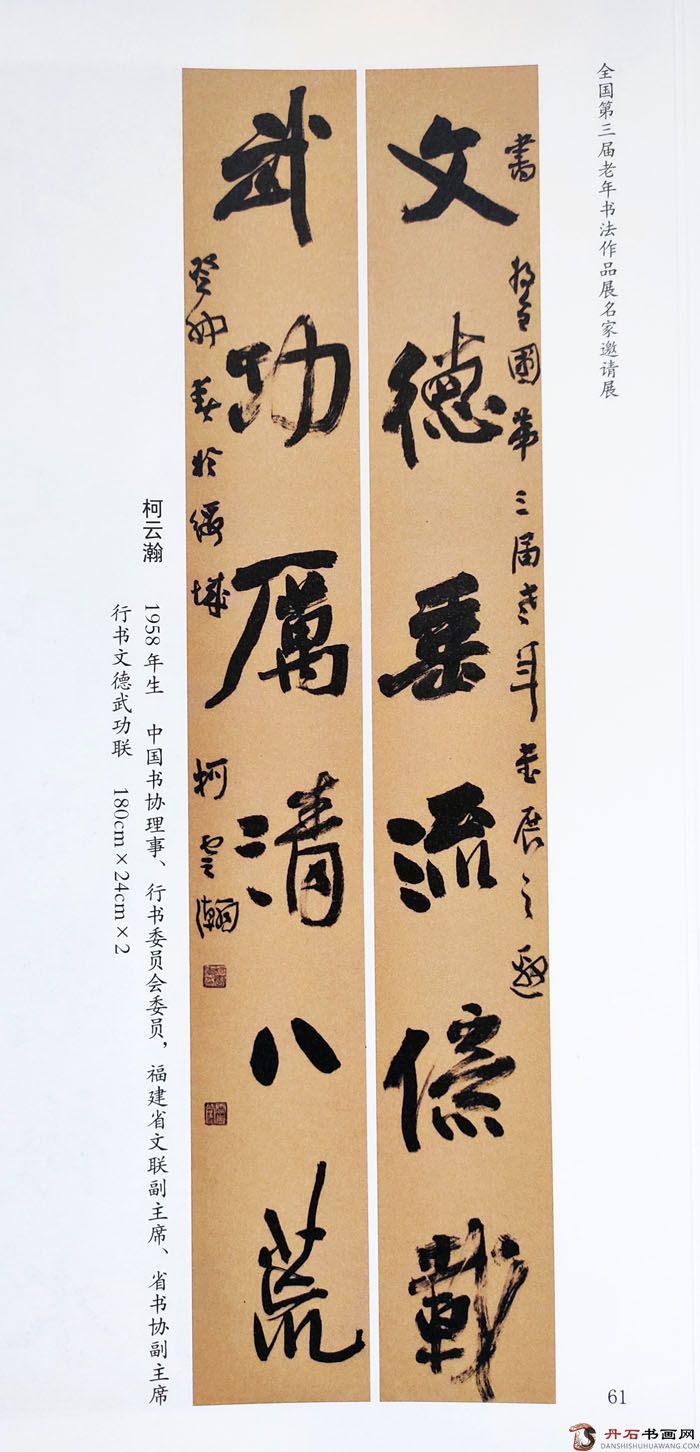 全国第三届老年书法作品展名家邀请展
文德垂流亿载
書於全國第三届老年书展之邀
武功厲清八荒
癸卯春於绥城
柯云瀚
柯云瀚 1958年生 中国书协理事、行书委员会委员，福建省文联副主席、省书协副主席
行书文德武功联 180cm×24cm×2
61
丹石书画网
DANSHISHUHUAWANG.COM